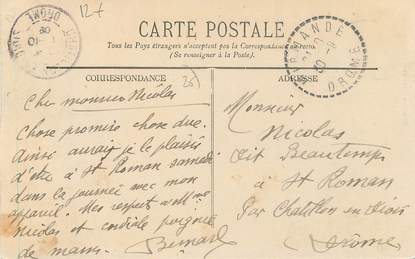 12 f
CARTE POSTALE
Tous les Pays étrangers n'acceptent pas la Correspondance au recto.
(Se renseigner à la Poste).
CORRESPONDANCE
ADRESSE
DROME
Cher monsieur Nicolas
Chose promise chose due.
Ainsi aurai je le plaisir
d'etre à St Roman samedi
dans la journée avec mon
appareil. Mes respects à Mme
Nicolas et cordiale poignée
de mains. Bernard
Monsieur
Nicolas
dit Beautemps
à St Roman
Par Chatillon en Diois
Drôme